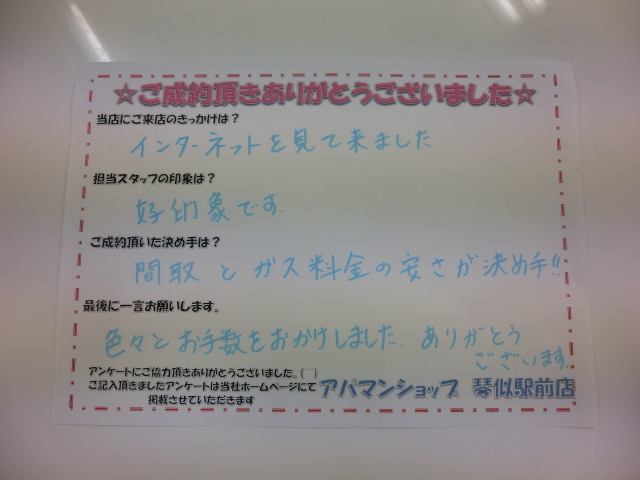 ☆ご成約頂きありがとうございました☆
当店にご来店のきっかけは？
インターネットを見て来ました
担当スタッフの印象は？
好印象です.
ご成約頂いた決め手は？
間取とガス料金の安さが決め手!!
最後に一言お願いします。
色々とお手数をおかけしました. ありがとう
ございます.
アンケートにご協力頂きありがとうございました。(__)
ご記入頂きましたアンケートは当社ホームページにて
掲載させていただきます
アパマンショップ 琴似駅前店